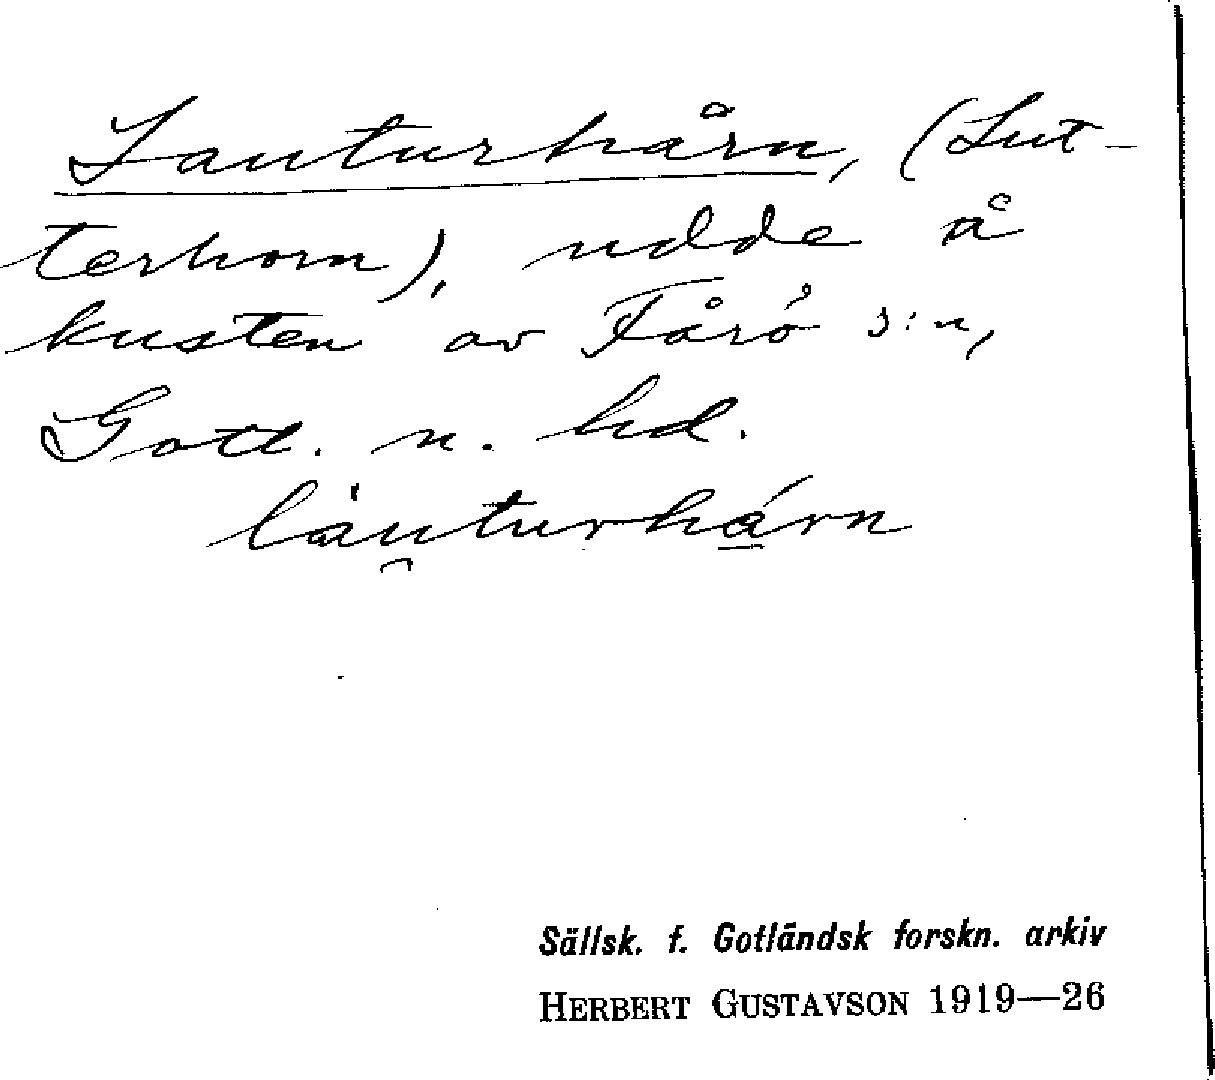 Lauturhårn, (Lut-
terhorn), udde å
kusten av Fårö s:n,
Gotl. n. hd.
làu̯turhá̱rn
Sällsk. f. Gotländsk forskn. arkiv
HERBERT GUSTAVSON 1919—26